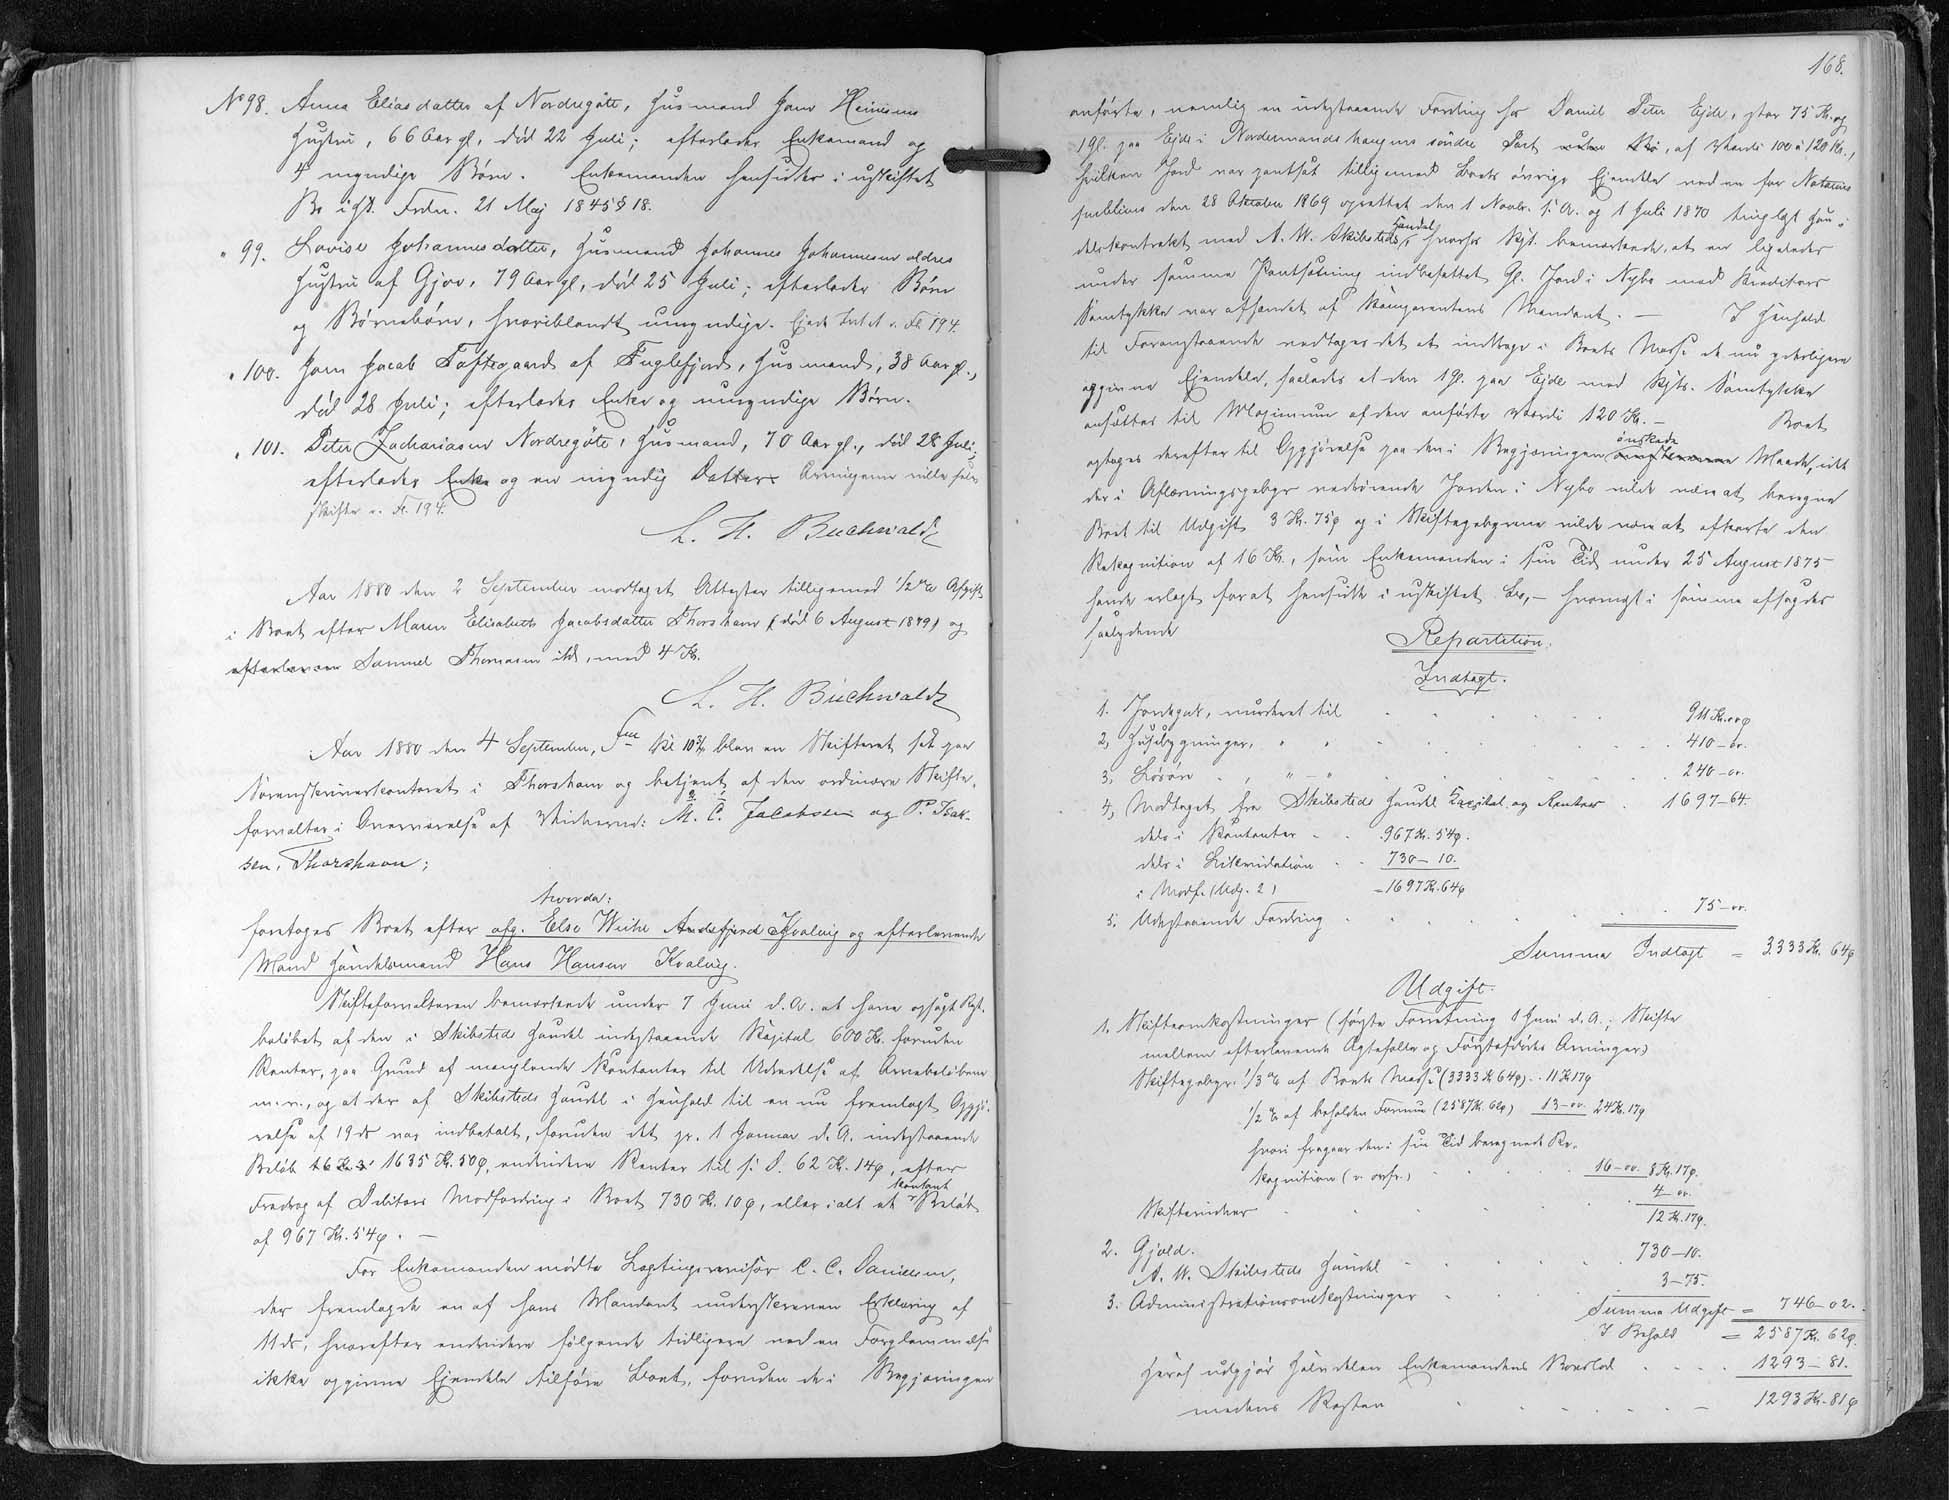 No 98. Anna Eliasdatter af Nordregöte, Husmand Hans Heinesens
Hustru, 66 Aar gl., död 22 Juli; efterlader Enkemand og
4 myndige Börn. Enkemanden hensidder i uskiftet
Bo ifgl. Frdn. 21 Maj 1845 § 18.
" 99. Lovise Johannesdatter, Husmand Johannes Johannesen ældres
Hustru af Gjov, 79 Aar gl., död 25 Juli; efterlader Börn
og Börnebörn, hvoriblandt umyndige. Ejede Intet v. Fl 194.
" 100. Hans Jacob Toftegaard af Fuglefjord, Husmand, 38 Aar gl.,
död 28 Juli; efterlader Enke og umyndige Börn.
" 101. Peter Zachariasen Nordregöte, Husmand, 70 Aar gl., död 28 Juli;
efterlader Enke og en myndig Datter. Arvingerne ville selv
skifte v. Fl. 194.
L. H. Buchwaldt
Aar 1880 den 2 September modtaget Attester tilligemed 1/2 % Afgift
i Boet efter Maren Elisabeth Jacobsdatter Thorshavn (död 6 August 1879) og
efterlevende Samuel Thomasen ibd., med 4 Kr.
L. H. Buchwaldt
Aar 1880 den 4 September, Fm Kl 10 1/2 blev en Skifteret sat paa
Sorenskriverkontoret i Thorshavn og betjent af den ordinære Skifte-
forvalter i Overværelse af Vidnerne: M. C. Jacobsen og P. Isak-
sen, Thorshavn;
hvorda:
foretoges Boet efter afg. Else Weihe Andefjord Kvalvig og efterlevende
Mand Handelsmand Hans Hansen Kvalvig.
Skifteforvalteren bemærkede under 7 Juni d. A. at have opsagt Rest-
beløbet af den i Skibsteds Handel indestaaende Kapital 600 Kr. foruden
Renter, paa Grund af manglende Kontanter til Udredelse af Arvebeløbene
m. v., og at der af Skibsteds Handel i Henhold til en nu fremlagt Opgjö-
relse af 19 ds var indbetalt, foruden det pr. 1 Januar d. A. indestaaende
Beløb 1635 Kr. 50 ø, endvidere Renter til s. D. 62 Kr. 14 ø, efter
Fradrag af Debitors Modfordring i Boet 730 Kr. 10 ø, eller ialt et kontant Beløb
af 967 Kr. 54 ø. —
For Enkemanden mødte Lagtingsrevisor C. C. Danielsen,
der fremlagde en af hans Mandant underskreven Erklæring af
11 ds, hvorefter endvidere følgende tidligere ved en Forglemmelse
ikke opgivne Ejendele tilføres Boet, foruden de i Begjæringen
168.
anførte, nemlig en udestaaende Fordring hos Daniel Peter Ejde, stor 75 Kr. og
1 Gl. paa Ejde i Nordurmandshaugens söndre Part, af Værdi 100 à 120 Kr.,
hvilken Jord var pantsat tilligemed Boets övrige Ejendele ved en for Notarius
publicus den 28 Oktober 1869 oprettet den 1 Novbr. s. A. og 1 Juli 1870 tinglæst Han-
delskontrakt med A. W. Skibsteds Handel, hvorfor Kpt. bemærkede, at en ligeledes
under samme Pantsætning indbefattet Gl. Jord i Nybo med Kreditors
Samtykke var afhændet af Komparentens Mandant. — I Henhold
til Foranstaaende vedtoges det at inddrage i Boets Masse de nu yderligere
opgivne Ejendele, saaledes at den 1 Gl. paa Ejde med Kpts. Samtykke
ansættes til Maximum af den anførte Værdi 120 Kr. — Boet
optoges derefter til Opgjörelse paa den i Begjæringen önskede Maade, idet
der i Aflæsningsgebyr vedrörende Jorden i Nybo vilde være at beregne
Boet til Udgift 3 Kr. 75 ø og i Skiftegebyrene vilde være at afkorte den
Rekognition af 16 Kr., som Enkemanden i sin Tid under 25 August 1875
havde erlagt for at hensidde i uskiftet Bo, — hvornæst i samme afsagdes
saalydende
Repartition.
Indtægt.
1. Jordegods, vurderet til 911 Kr. 00 ø
2, Husebygninger, " " 410 — 00.
3, Løsöre " — " 240 — 00.
4, Modtaget fra Skibsteds Handel Kapital og Renter 1697 — 64.
dels i Kontanter 967 Kr. 54 ø.
dels i Likvidation 730 — 10.
i Modf. (Udg. 2) = 1697 Kr. 64 ø
5. Udestaaende Fordring 75 — 00.
Summa Indtægt = 3333 Kr. 64 ø
Udgift.
1. Skifteomkostninger (første Forretning 1 Juni d. A.; Skifte
mellem efterlevende Ægtefælle og Førstafdödes Arvinger)
Skiftegebyr: 1/3 % af Boets Masse (3333 Kr 64 ø) . . 11 Kr 17 ø
1/2 % af beholden Formue (2587 Kr. 62 ø) 13 — 00. 24 Kr. 17 ø
hvori fragaar den i sin Tid beregnede Re-
kognition (v. ovfr.) 16 — 00. 8 Kr. 17 ø.
Skiftevidner 4 — 00.
12 Kr. 17 ø.
2. Gjæld.
A. W. Skibsteds Handel 730 — 10.
3. Administrationsomkostninger 3 — 75.
Summa Udgift = 746 — 02.
I Behold = 2587 Kr. 62 ø.
Heraf udgjör Halvdelen Enkemandens Boeslod 1293 — 81.
medens Resten 1293 Kr. 81 ø